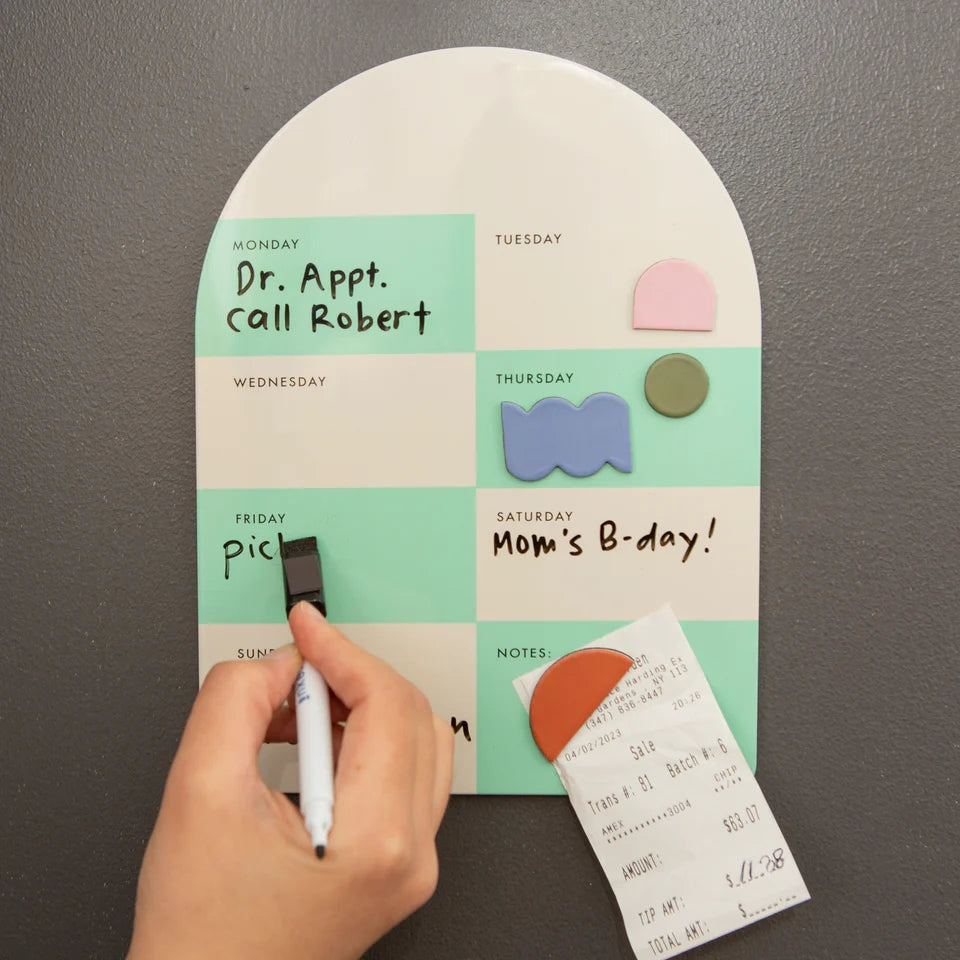 MONDAY
Dr. Appt.
call Robert
TUESDAY
WEDNESDAY
THURSDAY
FRIDAY
SATURDAY
Mom's B-day!
NOTES:
Harding Ex
NY 113
(347) 836-8447
04/02/2023
20:26
Sale
Trans #: 81
Batch #: 6
AMEX
***********3004
CHIP
**/**
AMOUNT:
$63.07
TIP AMT:
$ 11.38
TOTAL AMT:
$